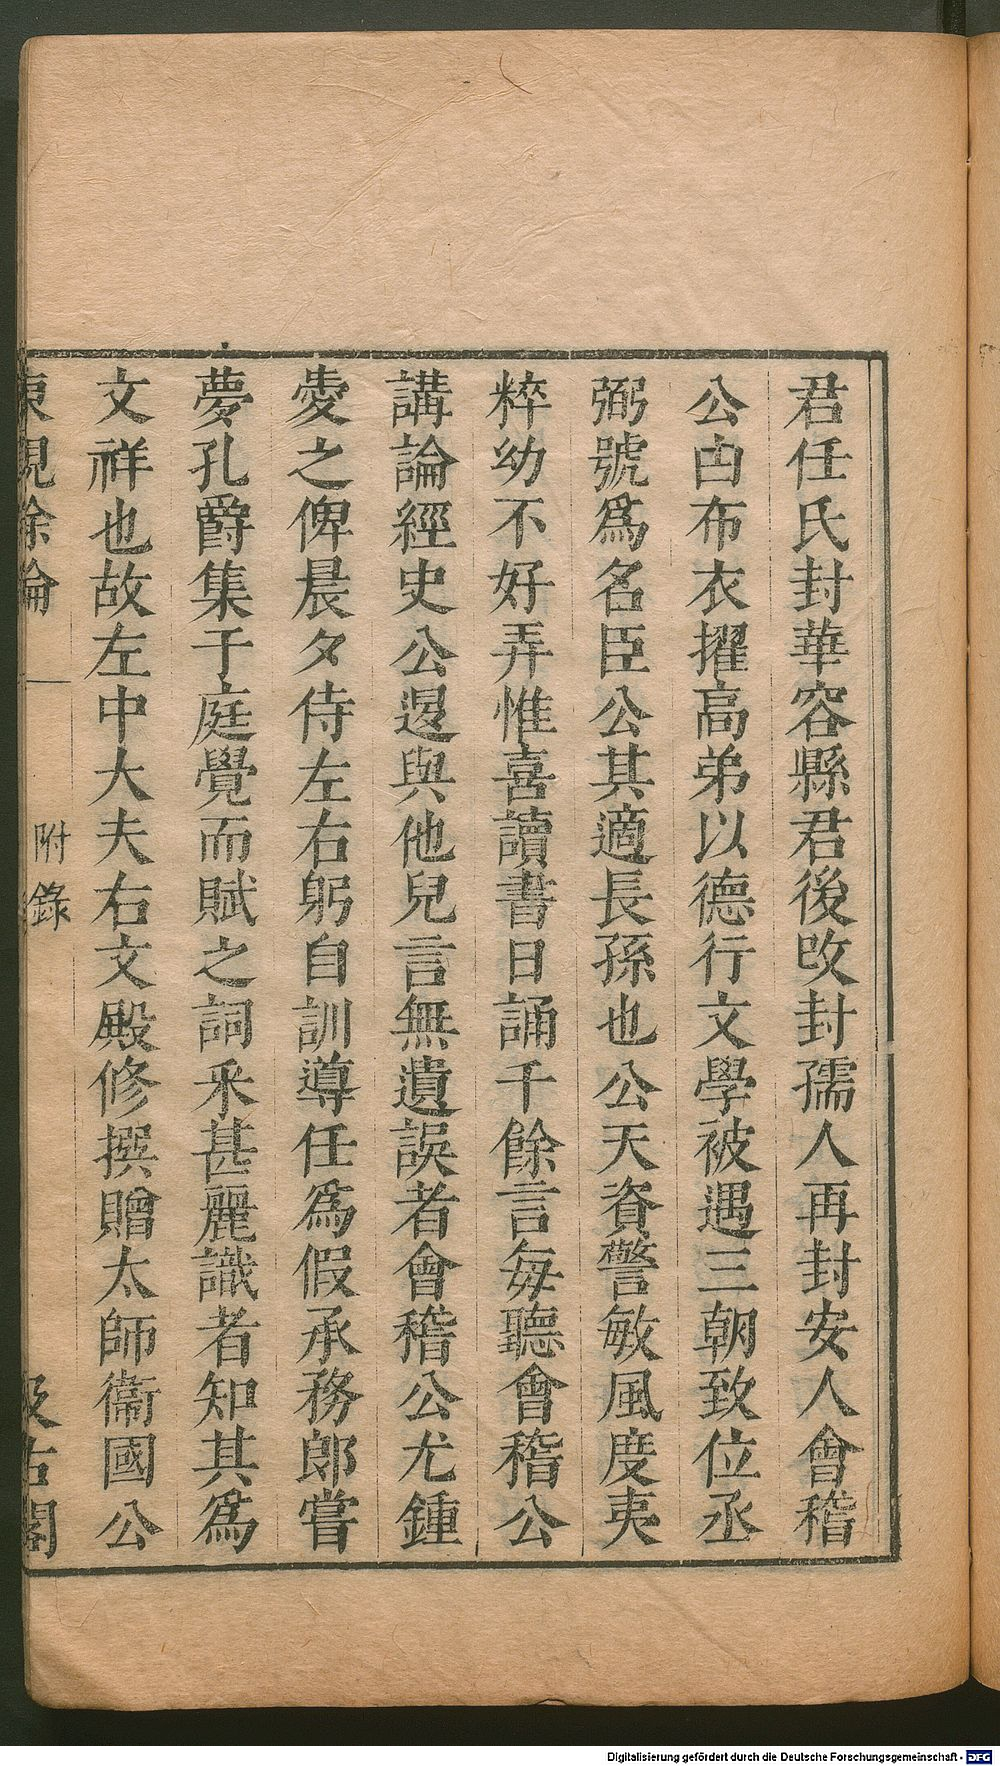 君任氏封華容縣君後改封孺人再封安人會稽
公由布衣擢高弟以德行文學被遇三朝致位丞
弼號爲名臣公其適長孫也公天資警敏風度夷
粹幼不好弄惟喜讀書日誦千餘言每聽會稽公
講論經史公退與他兒言無遺誤者會稽公尤鍾
愛之俾晨夕侍左右躬自訓導任爲假承務郎嘗
夢孔爵集于庭覺而賦之詞采甚麗識者知其爲
文祥也故左中大夫右文殿修撰贈太師衞國公
東觀餘論
附錄
汲古閣
Digitalisierung gefördert durch die Deutsche Forschungsgemeinschaft - DFG